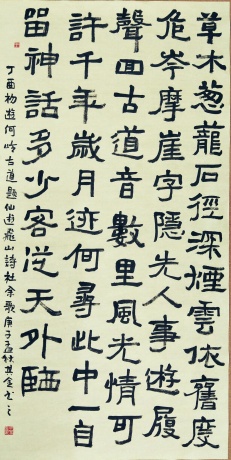 草木葱蘢石徑深煙雲依舊度
危岑摩崖字隱先人事遊履
聲回古道音數里風光情可
許千年歲月迹何尋此中一自
留神話多少客從天外臨
丁酉初遊何岭古道題仙遊山詩社余歌庚子孟秋其金书之